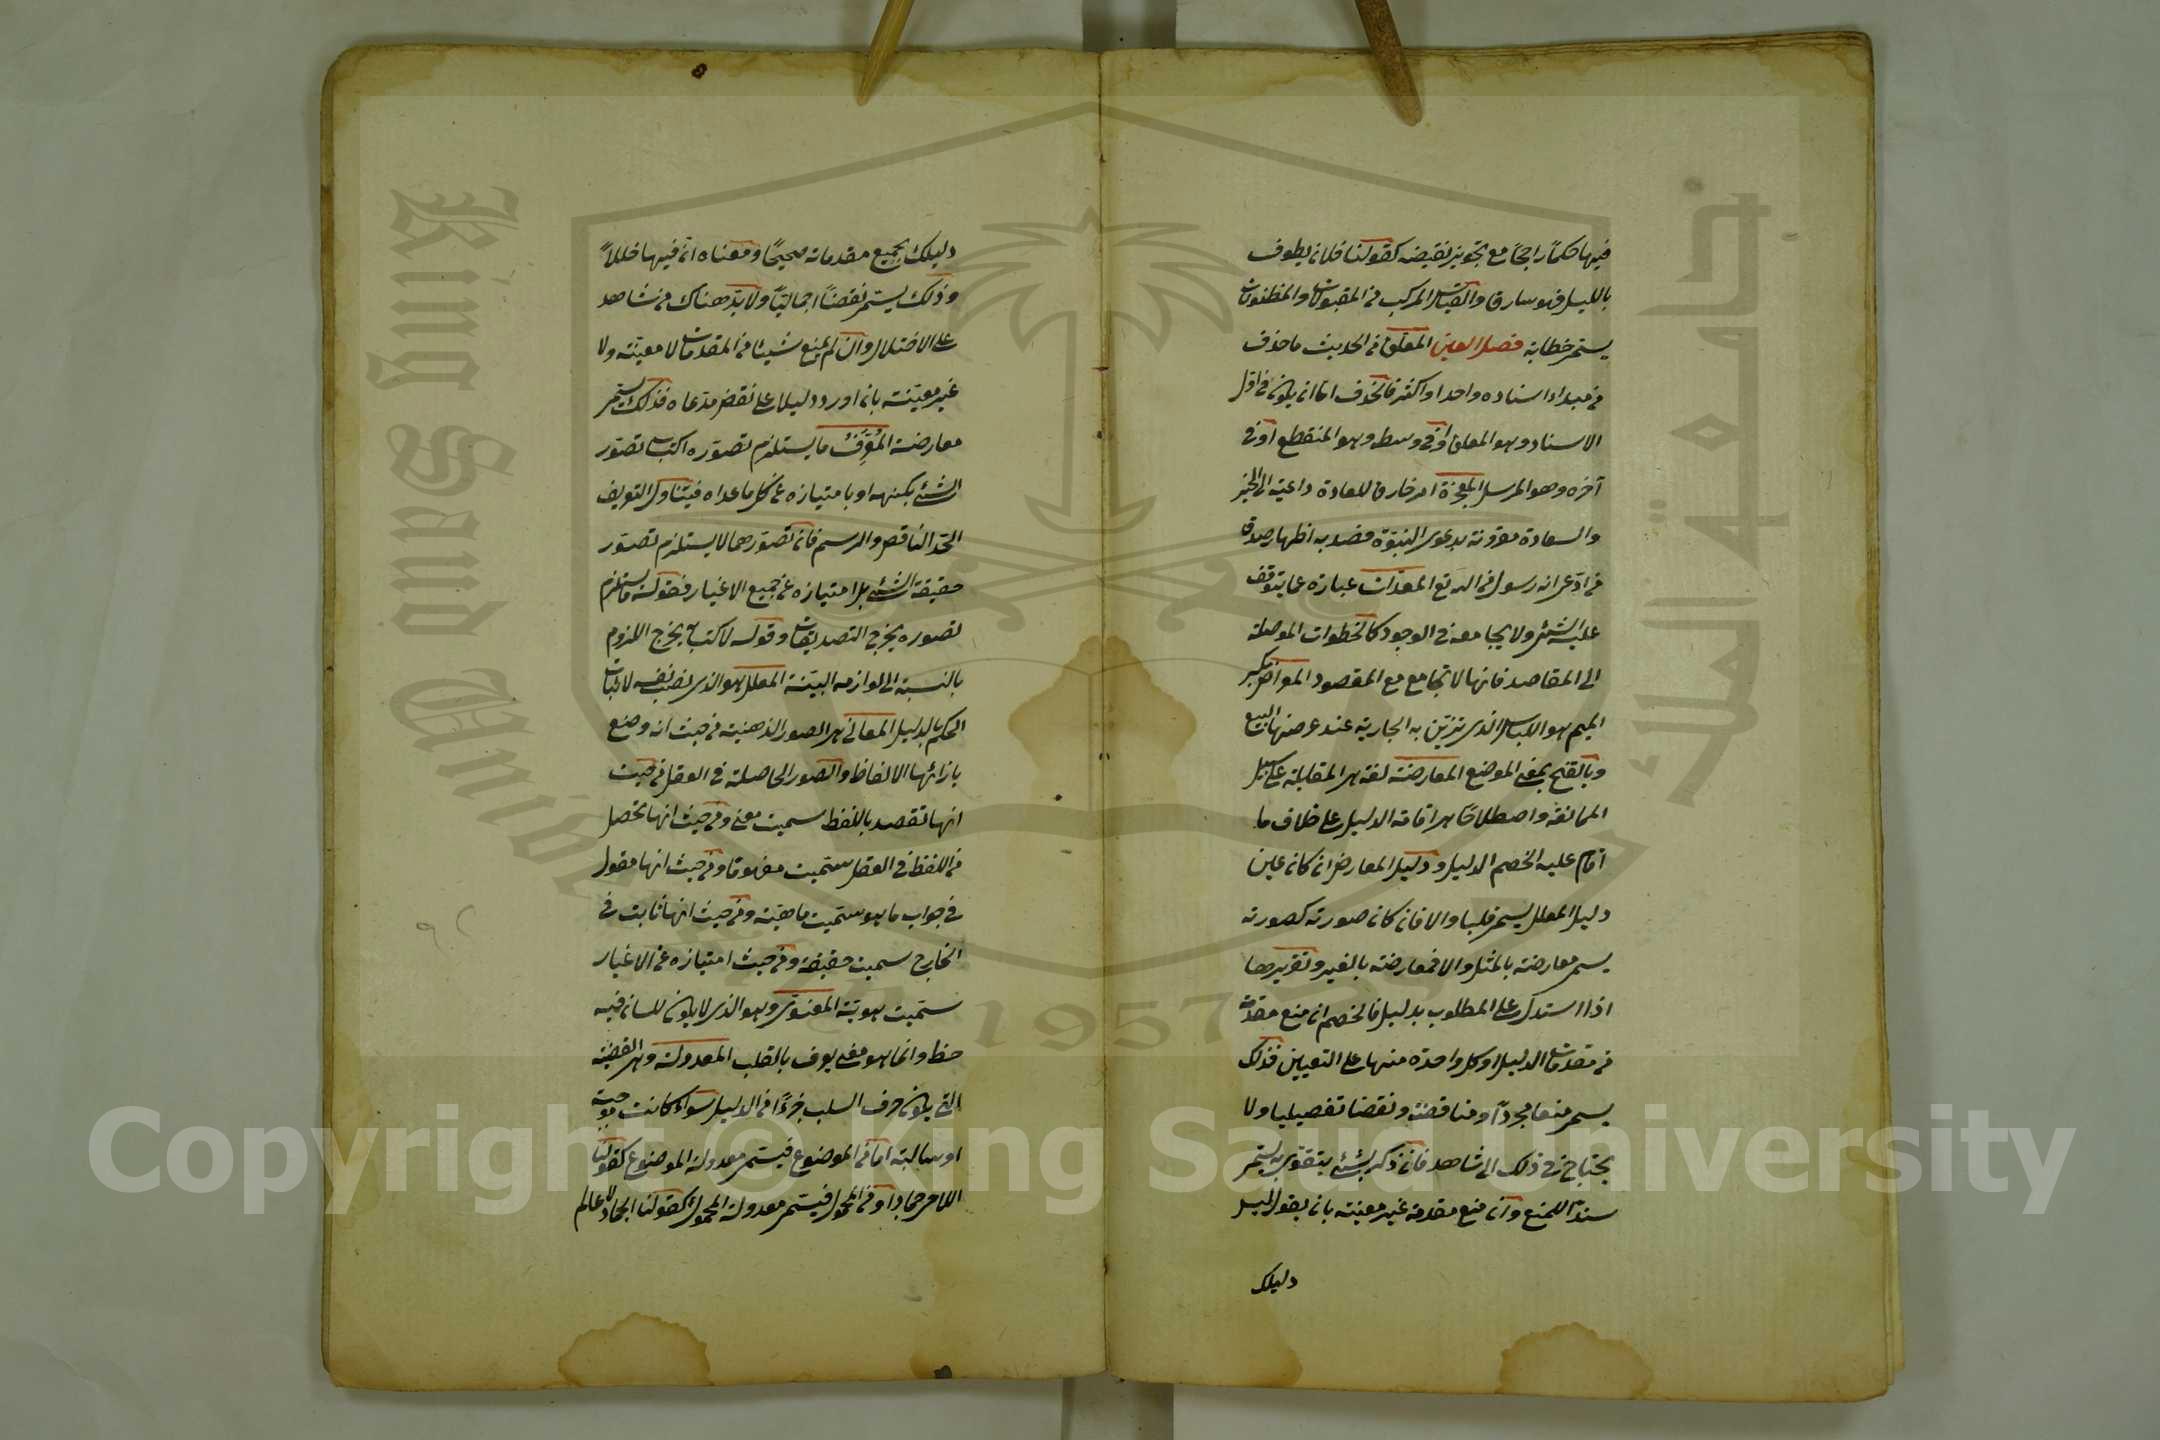 فيها حكمًا راجحًا مع تجويز نقيضه كقولنا فلان يطوف
بالليل فهو سارق والقياس المركب من المقبولات والمظنونات
يسمى خطابة فصل العين المعلق من الحديث ما حذف
من مبداء اسناده واحد او اكثر فالحذف اما ان يكون في اول
الاسناد وهو المعلق او في وسطه وهو المنقطع او في
آخره وهو المرسل المعجزة امر خارق للعادة داعية الى الخير
والسعادة مقرونة بدعوى النبوّة قصد به اظهار صدق
من ادّعى انه رسول من الله تع المعدّات عبارة عما يتوقف
عليه الشئ ولا يجامعه في الوجود كالخطوات الموصلة
الى المقاصد فانها لا تجامع مع المقصود المعرض بكسر
الميم هو اللباس الذي تزيّن به الجارية عند عرضها للبيع
وبالفتح بمعنى الموضع المعارضة لغة هى المقابلة على سبيل
الممانعة واصطلاحًا هى اقامة الدليل على خلاف ما
اقام عليه الخصم الدليل ودليل المعارض ان كان عين
دليل المعلل يسمى قلبا والا فان كان صورته كصورته
يسمى معارضة بالمثل والا فمعارضة بالغير وتقريرها
اذا استدل على المطلوب بدليل فالخصم ان منع مقدّمة
من مقدمات الدليل او كل واحدة منها على التعيين فذلك
يسمى منعا مجردًا ومناقضة ونقضا تفصيليا ولا
يحتاج في ذلك الى شاهد فان ذكر بشئ يتقوى به يسمى
سندًا للمنع وان منع مقدمة غير معينة بان يقول ليس
دليلك
دليلك بجميع مقدماته صحيحًا ومعناه انّ فيها خللًا
وذلك يسمى نقضًا اجماليًّا ولا بدّ هناك من شاهد
على الاختلال وان لم يمنع شيئا من المقدمات لا معيّنة ولا
غير معيّنة بان اورد دليلا على نقض مدّعاه فذلك يسمى
معارضة المُعَرِّفُ ما يستلزم تصوّره اكتساب تصوّر
الشئ بكنهه او بامتيازه عن كل ما عداه فيتناول التعريف
الحدّ الناقص والرسم فان تصوّرهما لا يستلزم تصوّر
حقيقة الشئ بل امتيازه عن جميع الاغيار فقوله ما يستلزم
تصوره يخرج التصديقات وقوله لاكتساب يخرج الملزوم
بالنسبة الى لوازمه البيّنة المعلل هو الذي نصب نفسه لاثبات
الحكم بالدليل المعاني هى الصور الذهنية من حيث انه وضع
بازائها الالفاظ والصور الحاصلة في العقل فمن حيث
انها تقصد باللفظ سميت معنى ومن حيث انها تحصل
من اللفظ في العقل سمّيت مفهوما ومن حيث انها مقول
في جواب ما هو سمّيت ماهيّة ومن حيث انها ثابت في
الخارج سميت حقيقة ومن حيث امتيازه عن الاغيار
سمّيت هويّة المعنوى وهو الذي لا يكون للسان فيه
حظ وانما هو معنى يعرف بالقلب المعدولة وهى القضيّة
التي يكون حرف السلب جزءًا من الدليل سواء كانت موجبة
او سالبة اما من الموضوع فيسمى معدولة الموضوع كقولنا
اللاحى جماد او من المحمول فيسمى معدولة المحمول كقولنا الجماد لا عالم
King Saud University
جامعة الملك سعود
1957
Copyright © King Saud University